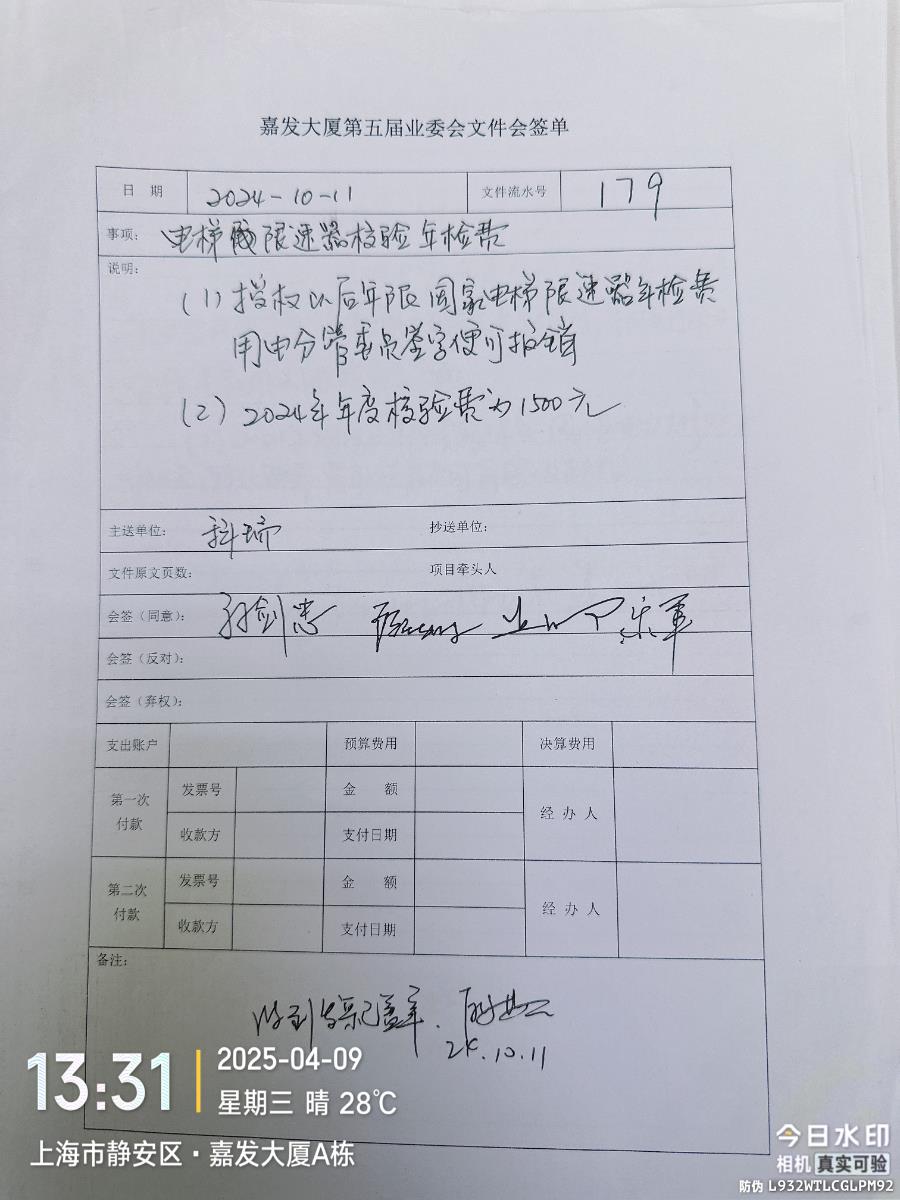 嘉发大厦第五届业委会文件会签单
日 期 2024-10-11 文件流水号 179
事项: 电梯限速器校验年检费
说明:
(1) 授权以后年限 国家电梯限速器年检费
用由分管委员签字便可报销
(2) 2024年年度校验费为1500元
主送单位: 科瑞 抄送单位:
文件原文页数: 项目牵头人
会签（同意）: 孙剑忠 乐军
会签（反对）:
会签（弃权）:
支出账户 预算费用 决算费用
第一次付款 发票号 金 额 经 办 人
收款方 支付日期
第二次付款 发票号 金 额 经 办 人
收款方 支付日期
备注:
收到 盖章.
24.10.11
13:31 2025-04-09
星期三 晴 28℃
上海市静安区·嘉发大厦A栋
今日水印
相机 真实可验
防伪 L932WTLCGLPM92